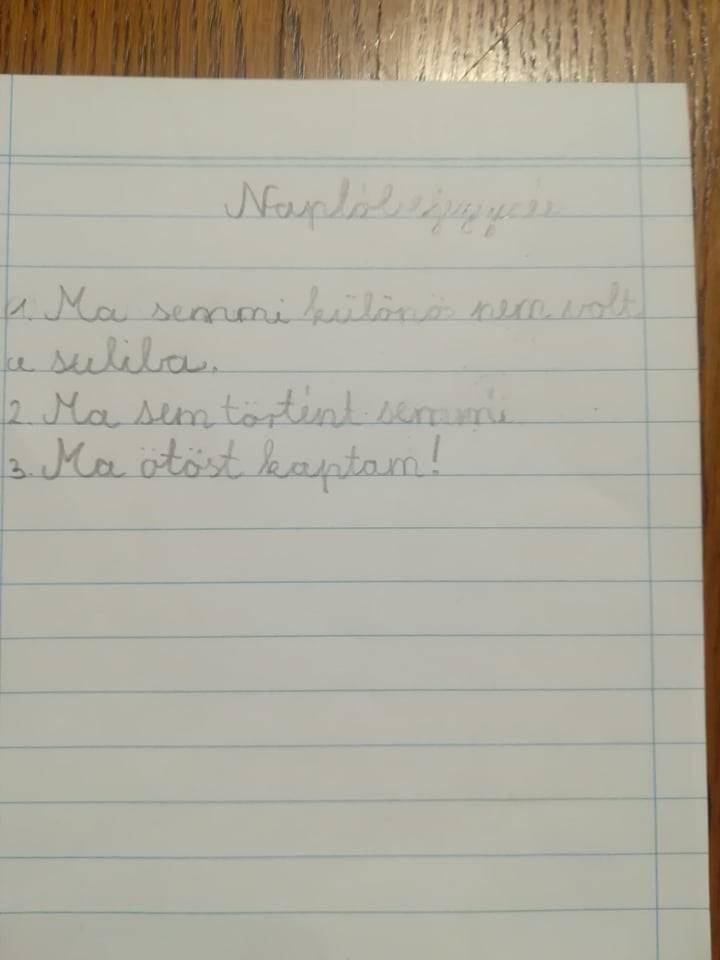 Naplólejegyzés
1. Ma semmi különö nem volt
a suliba.
2. Ma sem történt semmi
3. Ma ötöst kaptam!